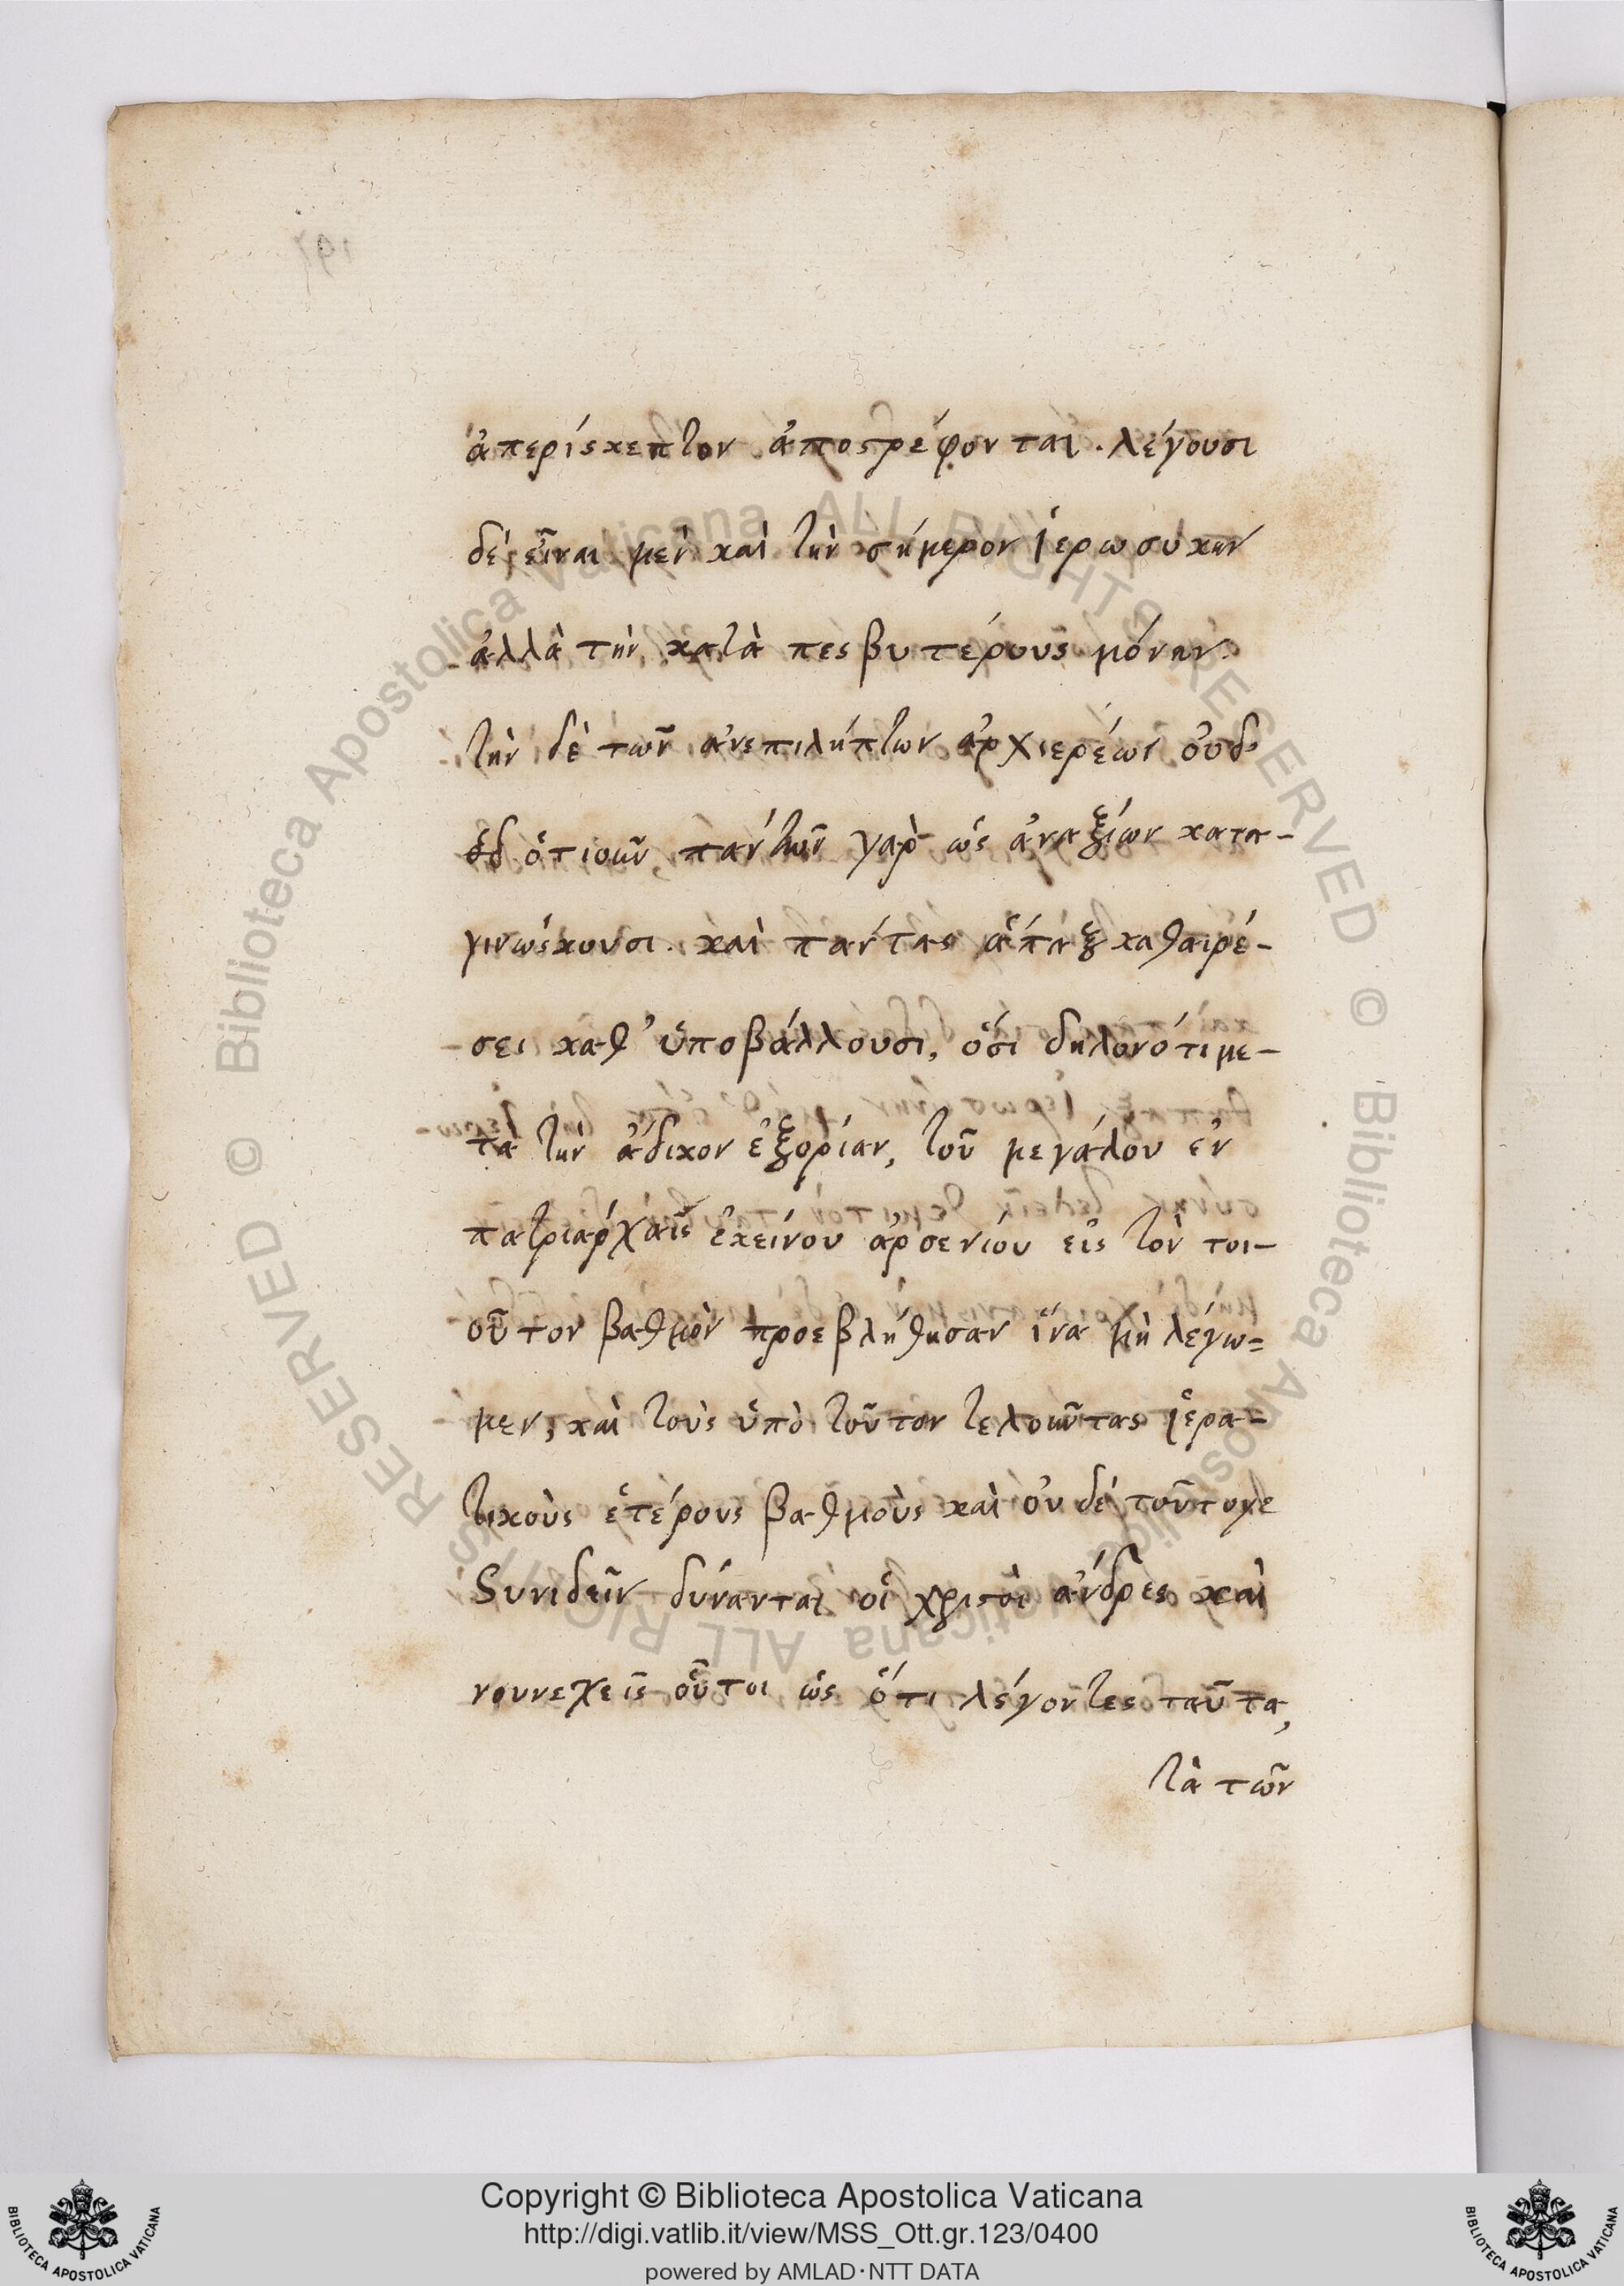 ἀπερίσκεπτον ἀποστρέφονται. λέγουσι
δέ, εἶναι μὲν καὶ τὴν σήμερον ἱερωσύκην
ἀλλὰ τὴν κατὰ πεσβυτέρους μόνην.
τὴν δὲ τῶν ἀνεπιλήπτων ἀρχιερέων οὐδ
ὁτιοῦν, πάντων γὰρ ὡς ἀναξίων κατα-
γινώσκουσι. καὶ πάντας ἅπαξ καθαιρέ-
σει καθ' ὑποβάλλουσι, ὅσι δηλονότι με-
τὰ τὴν ἄδικον ἐξορίαν, τοῦ μεγάλου ἐν
πατριάρχαις ἐκείνου ἀρσενίου εἰς τὸν τοι-
οῦτον βαθμὸν προεβλήθησαν ἵνα μὴ λέγω=
μεν, καὶ τοὺς ὑπὸ τοῦτον τελοῦντας ἱερα-
τικοὺς ἑτέρους βαθμοὺς καὶ οὐδὲ τοῦτογε
συνιδεῖν δύνανται οἱ χριστοὶ ἄνδρες καὶ
νουνεχεῖς οὗτοι ὡς ὅτι λέγοντες ταῦτα,
τὰ τῶν
Copyright © Biblioteca Apostolica Vaticana
http://digi.vatlib.it/view/MSS_Ott.gr.123/0400
powered by AMLAD·NTT DATA